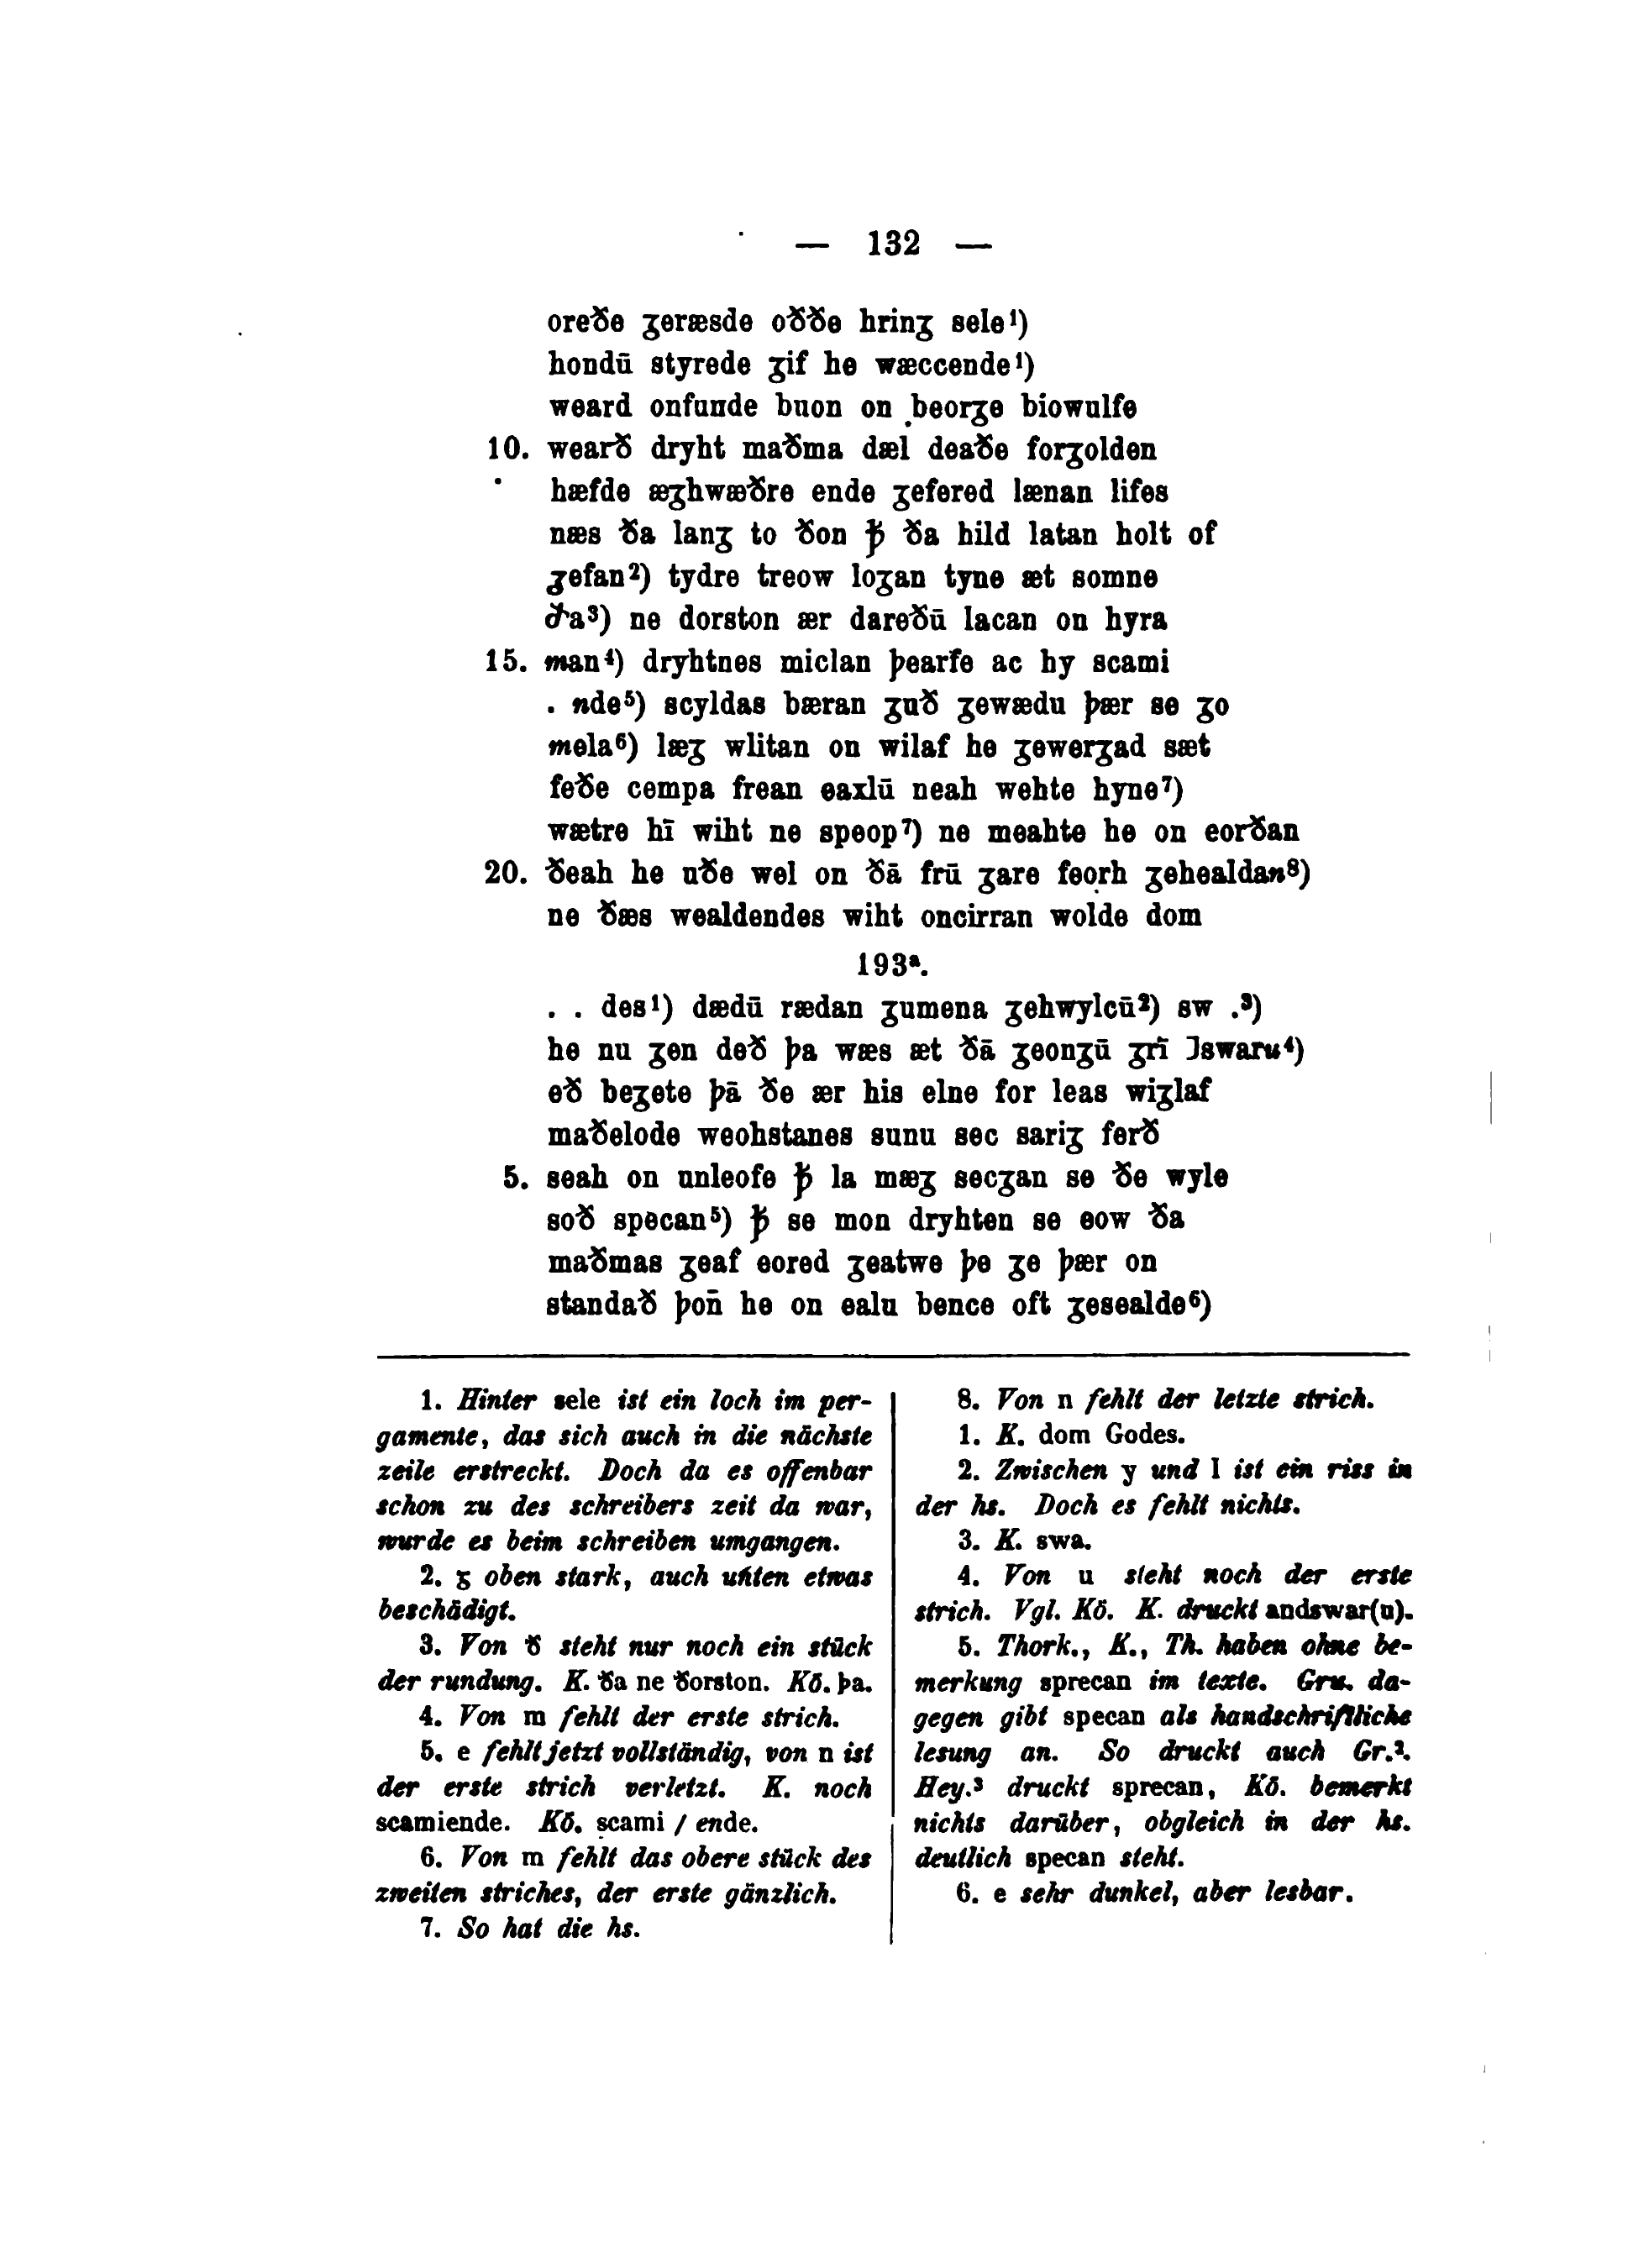 — 132 —
oreðe ȝeræsde oððe hrinȝ sele¹)
hondū styrede ȝif he wæccende¹)
weard onfunde buon on beorȝe biowulfe
10. wearð dryht maðma dæl deaðe forȝolden
hæfde æȝhwæðre ende ȝefered lænan lifes
næs ða lanȝ to ðon ꝥ ða hild latan holt of
ȝefan²) tydre treow loȝan tyne æt somne
ða³) ne dorston ær dareðū lacan on hyra
15. man⁴) dryhtnes miclan þearfe ac hy scami
. nde⁵) scyldas bæran ȝuð ȝewædu þær se ȝo
mela⁶) læȝ wlitan on wilaf he ȝewerȝad sæt
feðe cempa frean eaxlū neah wehte hyne⁷)
wætre hī wiht ne speop⁷) ne meahte he on eorðan
20. ðeah he uðe wel on ðā frū ȝare feorh ȝehealdan⁸)
ne ðæs wealdendes wiht oncirran wolde dom
193ᵃ.
. . des¹) dædū rædan ȝumena ȝehwylcū²) sw .³)
he nu ȝen deð þa wæs æt ðā ȝeonȝū ȝrī ⁊swaru⁴)
eð beȝete þā ðe ær his elne for leas wiȝlaf
maðelode weohstanes sunu sec sariȝ ferð
5. seah on unleofe ꝥ la mæȝ secȝan se ðe wyle
soð specan⁵) ꝥ se mon dryhten se eow ða
maðmas ȝeaf eored ȝeatwe þe ȝe þær on
standað þon̄ he on ealu bence oft ȝesealde⁶)
1. Hinter sele ist ein loch im per-
gamente, das sich auch in die nächste
zeile erstreckt. Doch da es offenbar
schon zu des schreibers zeit da war,
wurde es beim schreiben umgangen.
2. ȝ oben stark, auch unten etwas
beschädigt.
3. Von ð steht nur noch ein stück
der rundung. K. ða ne ðorston. Kö. þa.
4. Von m fehlt der erste strich.
5. e fehlt jetzt vollständig, von n ist
der erste strich verletzt. K. noch
scamiende. Kö. scami / ende.
6. Von m fehlt das obere stück des
zweiten striches, der erste gänzlich.
7. So hat die hs.
8. Von n fehlt der letzte strich.
1. K. dom Godes.
2. Zwischen y und l ist ein riss in
der hs. Doch es fehlt nichts.
3. K. swa.
4. Von u steht noch der erste
strich. Vgl. Kö. K. druckt andswar(u).
5. Thork., K., Th. haben ohne be-
merkung sprecan im texte. Gru. da-
gegen gibt specan als handschriftliche
lesung an. So druckt auch Gr.².
Hey.³ druckt sprecan, Kö. bemerkt
nichts darüber, obgleich in der hs.
deutlich specan steht.
6. e sehr dunkel, aber lesbar.